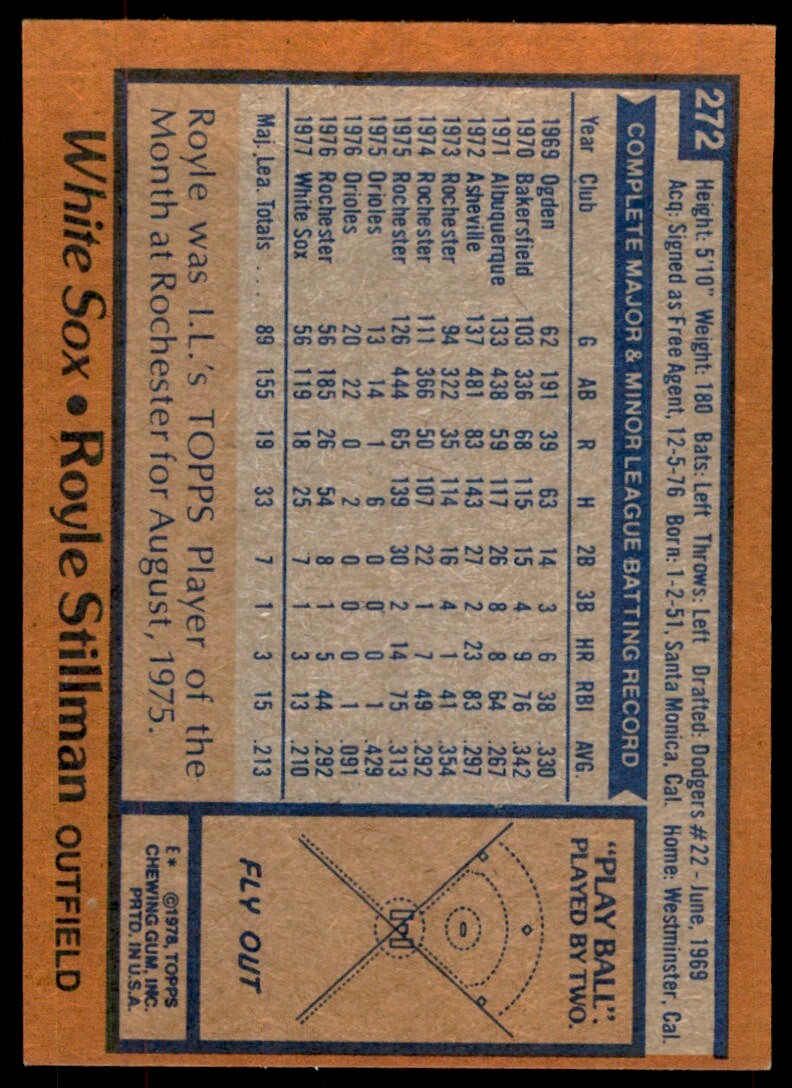 272
Height: 5'10" Weight: 180 Bats: Left Throws: Left Drafted: Dodgers #22 - June, 1969
Acq: Signed as Free Agent, 12-5-76 Born: 1-2-51, Santa Monica, Cal. Home: Westminster, Cal.
COMPLETE MAJOR & MINOR LEAGUE BATTING RECORD
Year Club G AB R H 2B 3B HR RBI AVG.
1969 Ogden 62 191 39 63 14 3 6 38 .330
1970 Bakersfield 103 336 68 115 15 4 9 76 .342
1971 Albuquerque 133 438 59 117 26 8 8 64 .267
1972 Asheville 137 481 83 143 27 2 23 83 .297
1973 Rochester 94 322 35 114 16 4 1 41 .354
1974 Rochester 111 366 50 107 22 1 7 49 .292
1975 Rochester 126 444 65 139 30 2 14 75 .313
1975 Orioles 13 14 1 6 0 0 0 1 .429
1976 Orioles 20 22 0 2 0 0 0 1 .091
1976 Rochester 56 185 26 54 8 1 5 44 .292
1977 White Sox 56 119 18 25 7 1 3 13 .210
Maj. Lea. Totals .... 89 155 19 33 7 1 3 15 .213
Royle was I.L.'s TOPPS Player of the
Month at Rochester for August, 1975.
"PLAY BALL":
PLAYED BY TWO.
FLY OUT
E* ©1978, TOPPS
CHEWING GUM, INC.
PRTD. IN U.S.A.
White Sox • Royle Stillman OUTFIELD